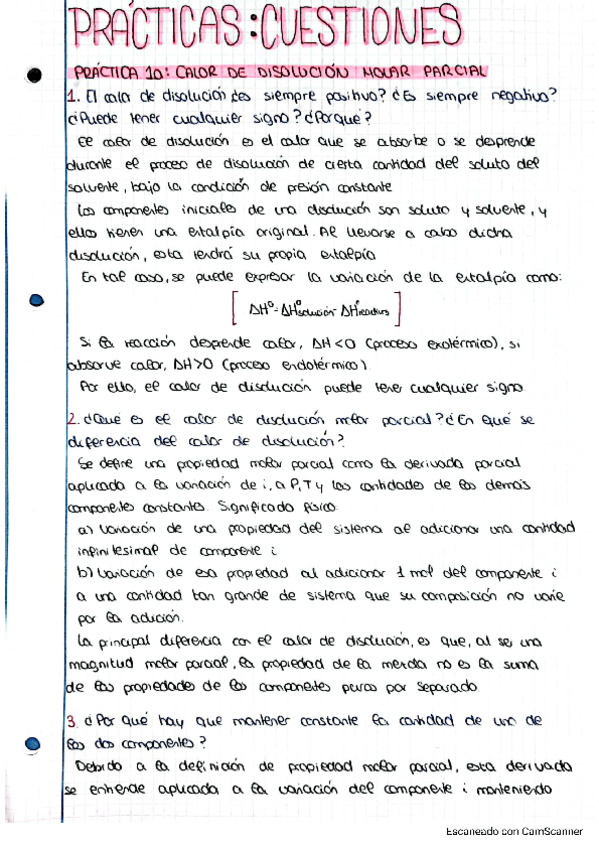 PRÁCTICAS: CUESTIONES
PRÁCTICA 10: CALOR DE DISOLUCIÓN MOLAR PARCIAL
1. El calor de disolución ¿es siempre positivo? ¿Es siempre negativo?
¿Puede tener cualquier signo? ¿Por qué?
El calor de disolución es el calor que se absorbe o se desprende
durante el proceso de disolución de cierta cantidad del soluto del
solvente, bajo la condición de presión constante
Los componentes iniciales de una disolución son soluto y solvente, y
ellos tienen una entalpía original. Al llevarse a cabo dicha
disolución, esta tendrá su propia entalpía
En tal caso, se puede expresar la variación de la entalpía como:
[ ΔH°= ΔH°solución - ΔH°reactivos ]
Si la reacción desprende calor, ΔH<0 (proceso exotérmico), si
absorve calor, ΔH>0 (proceso endotérmico)
Por ello, el calor de disolución puede tener cualquier signo.
2. ¿Qué es el calor de disolución molar parcial? ¿En qué se
diferencia del calor de disolución?
Se define una propiedad molar parcial como la derivada parcial
aplicada a la variación de i, a P, T y las cantidades de los demás
componentes constantes. Significado físico:
a) Variación de una propiedad del sistema al adicionar una cantidad
infinitesimal de componente i
b) Variación de esa propiedad al adicionar 1 mol del componente i
a una cantidad tan grande de sistema que su composición no varie
por la adición.
La principal diferencia con el calor de disolución, es que, al se una
magnitud molar parcial, la propiedad de la mezcla no es la suma
de las propiedades de los componentes puros por separado.
3. ¿Por qué hay que mantener constante la cantidad de uno de
los dos componentes?
Debido a la definición de propiedad molar parcial, esta derivada
se entiende aplicada a la variación del componente i manteniendo
Escaneado con CamScanner